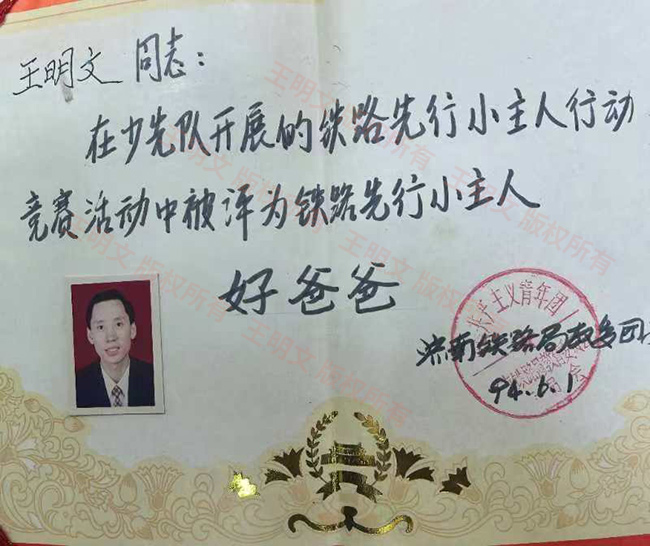 王明文 同志：
在少先队开展的铁路先行小主人行动
竞赛活动中被评为铁路先行小主人
好爸爸
共产主义青年团
济南铁路局
94.6.1
王明文 版权所有
王明文 版权所有
王明文 版权所有
王明文 版权所有